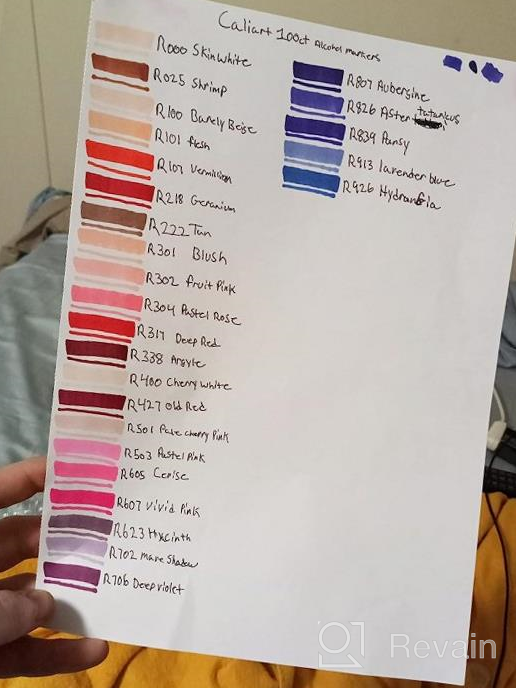 Caliart 100ct Alcohol markers
R000 Skin White
R025 Shrimp
R100 Barely Beige
R101 flesh
R107 Vermillion
R218 Geranium
R222 Tan
R301 Blush
R302 fruit Pink
R304 Pastel Rose
R317 Deep Red
R338 Argyle
R400 Cherry White
R427 Old Red
R501 Pale cherry Pink
R503 Pastel Pink
R605 Cerise
R607 Vivid Pink
R623 Hyacinth
R702 Mave Shadow
R706 Deep violet
R807 Aubergine
R826 Aster tatarikus
R839 Pansy
R913 lavender blue
R926 Hydrangia
Revain